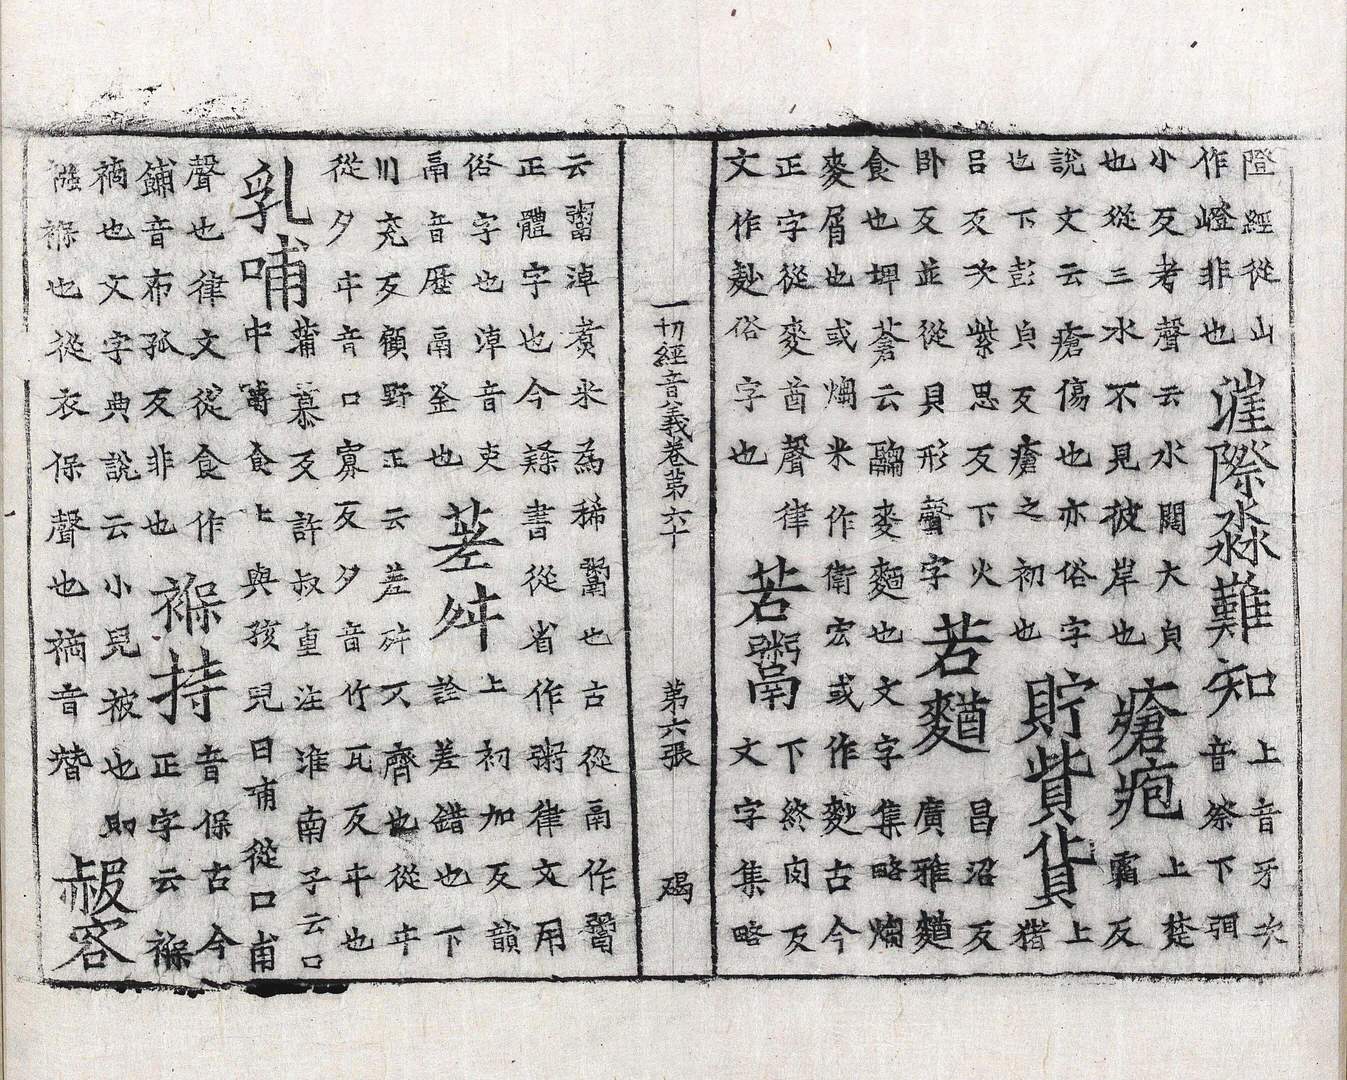 隥經從山
作嶝非也
漄際淼難知
上音牙次
音祭下弭
小反考聲云水闊大皃
也從三水不見彼岸也
瘡疱
上楚
霜反
說文云瘡傷也亦俗字
也下彭皃反瘡之初也
貯貲貨
上
猪
呂反次紫思反下火
臥反並從貝形聲字
若䴬
昌沼反
廣雅䴬
食也埤蒼云䵄麥麵也文字集略爛
麥屑也或爛米作衛宏或作麨古今
正字從麥酋聲律
文作麨俗字也
若鬻
下終肉反
文字集略
一切經音義卷第六十 第六張 碣
云鬻淖煮米為稀鬻也古從鬲作鬻
正體字也今隸書從省作粥律文用
俗字也淖音吏
鬲音歷鬲釜也
差舛
上初加反韻
詮差錯也下
川兗反顧野王云差舛不齊也從㐄
從夕㐄音口寡反夕音竹瓦反㐄也
乳哺
蒲慕反許叔重注淮南子云口
中嚼食上與孩兒曰哺從口甫
聲也律文從食作
餔音布孤反非也
褓持
音保古今
正字云褓
褅也文字典說云小兒被也即
襁褓也從衣保聲也褅音替
赧容